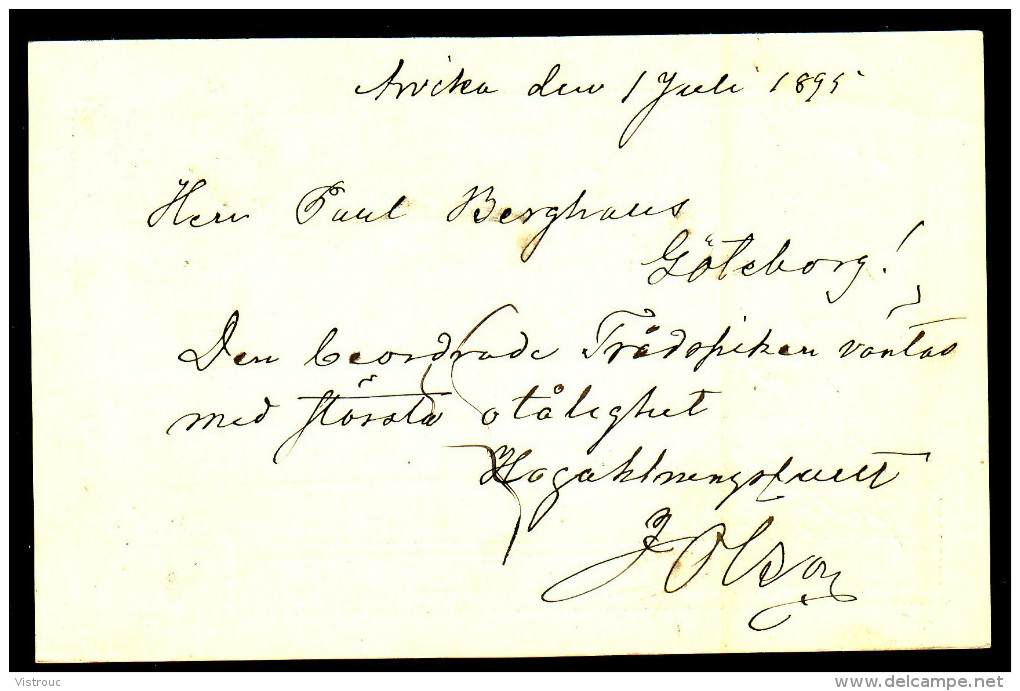 Arvika den 1 Juli 1895
Herr Paul Berghaus
Göteborg!
Den beordrade Trådspiken väntas
med största otålighet
Högaktningsfullt
J Olson
Vistrouc
delcampe.net